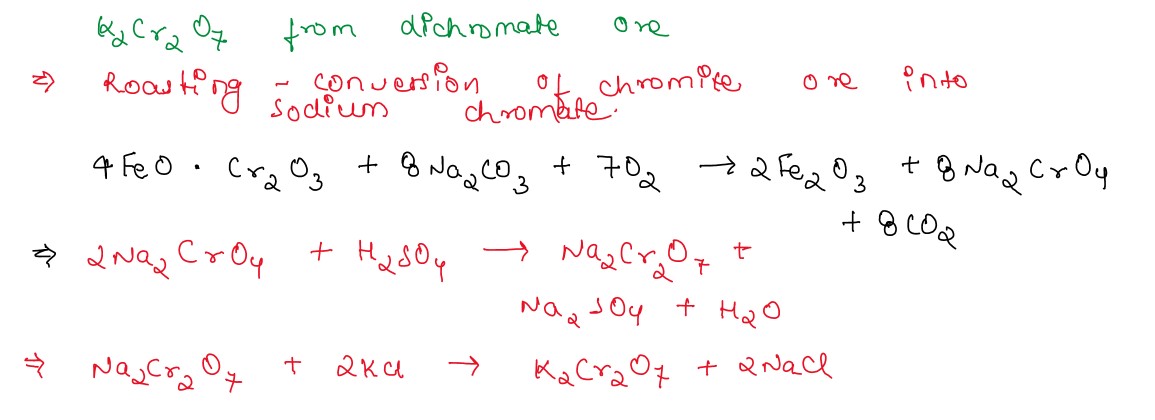 K₂Cr₂O₇ from dichromate ore
⇒ Roasting - conversion of chromite ore into
sodium chromate.
4FeO · Cr₂O₃ + 8Na₂CO₃ + 7O₂ → 2Fe₂O₃ + 8Na₂CrO₄
+ 8CO₂
⇒ 2Na₂CrO₄ + H₂SO₄ → Na₂Cr₂O₇ +
Na₂SO₄ + H₂O
⇒ Na₂Cr₂O₇ + 2KCl → K₂Cr₂O₇ + 2NaCl